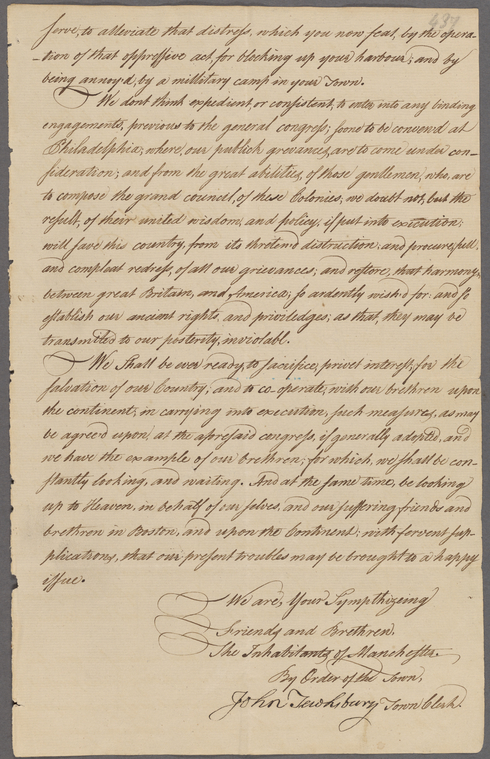 437
serve, to alleviate that distress, which you now feal, by the opera-
-tion of that oppressive act, for blocking up your harbour; and by
being annoy'd, by a millitary camp in your Town.
We dont think expedient, or consistent, to enter into any binding
engagements, previous to the general congress; soone to be conven'd at
Philadelphia; where, our publick grevances, are to come under con-
sideration; and from the great abilities, of those gentlemen, who, are
to compose the grand council, of these Colonies, we doubt not, but the
result, of their united wisdom, and policy, if put into execution;
will save this country, from its thretend distruction; and procure, full
and compleat redress, of all our grievances; and restore, that harmony,
between great Britain, and America; so ardently wish'd for: and so
establish our ancient rights, and priviledges; as that, they may be
transmitted to our posterity, inviolabl.
We Shall be ever ready to sacrifice, privet interest, for the
salvation of our Country; and to co-operate, with our brethren upon
the continent, in carrying into execution, such measures, as may
be agree'd upon, at the aforesaid congress, if generally adopted, and
we have the example of our brethren; for which, we shall be con-
stantly looking, and waiting. And at the same time, be looking
up to Heaven, in behalf of our selves, and our suffering friends and
brethren in Boston, and upon the Continent; with fervent sup-
plications, that our present troubles may be brought to a happy
issue.
We are, Your Sympthizeing
Friends and Brethren.
The Inhabitants of Manchester.
By Order of the Town,
John Tewksbury Town Clerk.